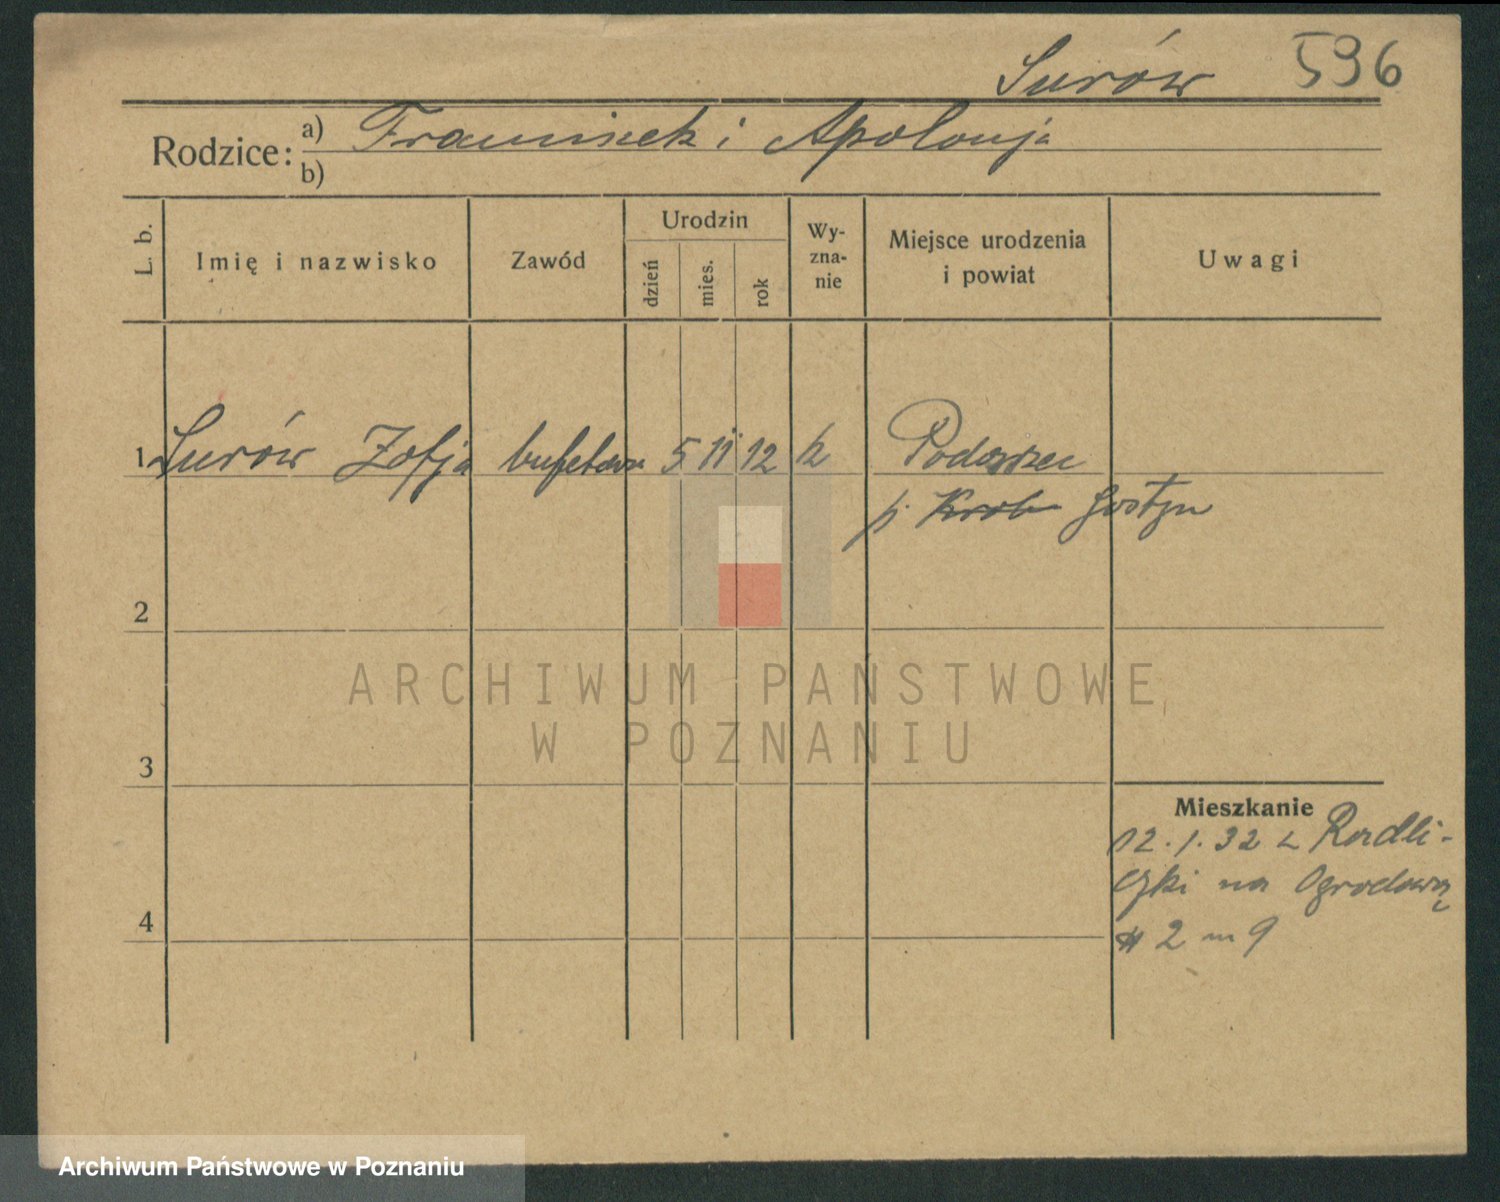 Surów 596
Rodzice: a) Franciszek i Apolonja
b)
L. b. Imię i nazwisko Zawód Urodzin dzień mies. rok Wy-zna-nie Miejsce urodzenia i powiat Uwagi
1 Surów Zofja bufetowa 5 11 12 k Podrzecze
p. Krob Gostyn
2
ARCHIWUM PAŃSTWOWE
W POZNANIU
3
Mieszkanie
12.1.32 z Radli-
czki na Ogrodową
4
# 2 m 9
Archiwum Państwowe w Poznaniu